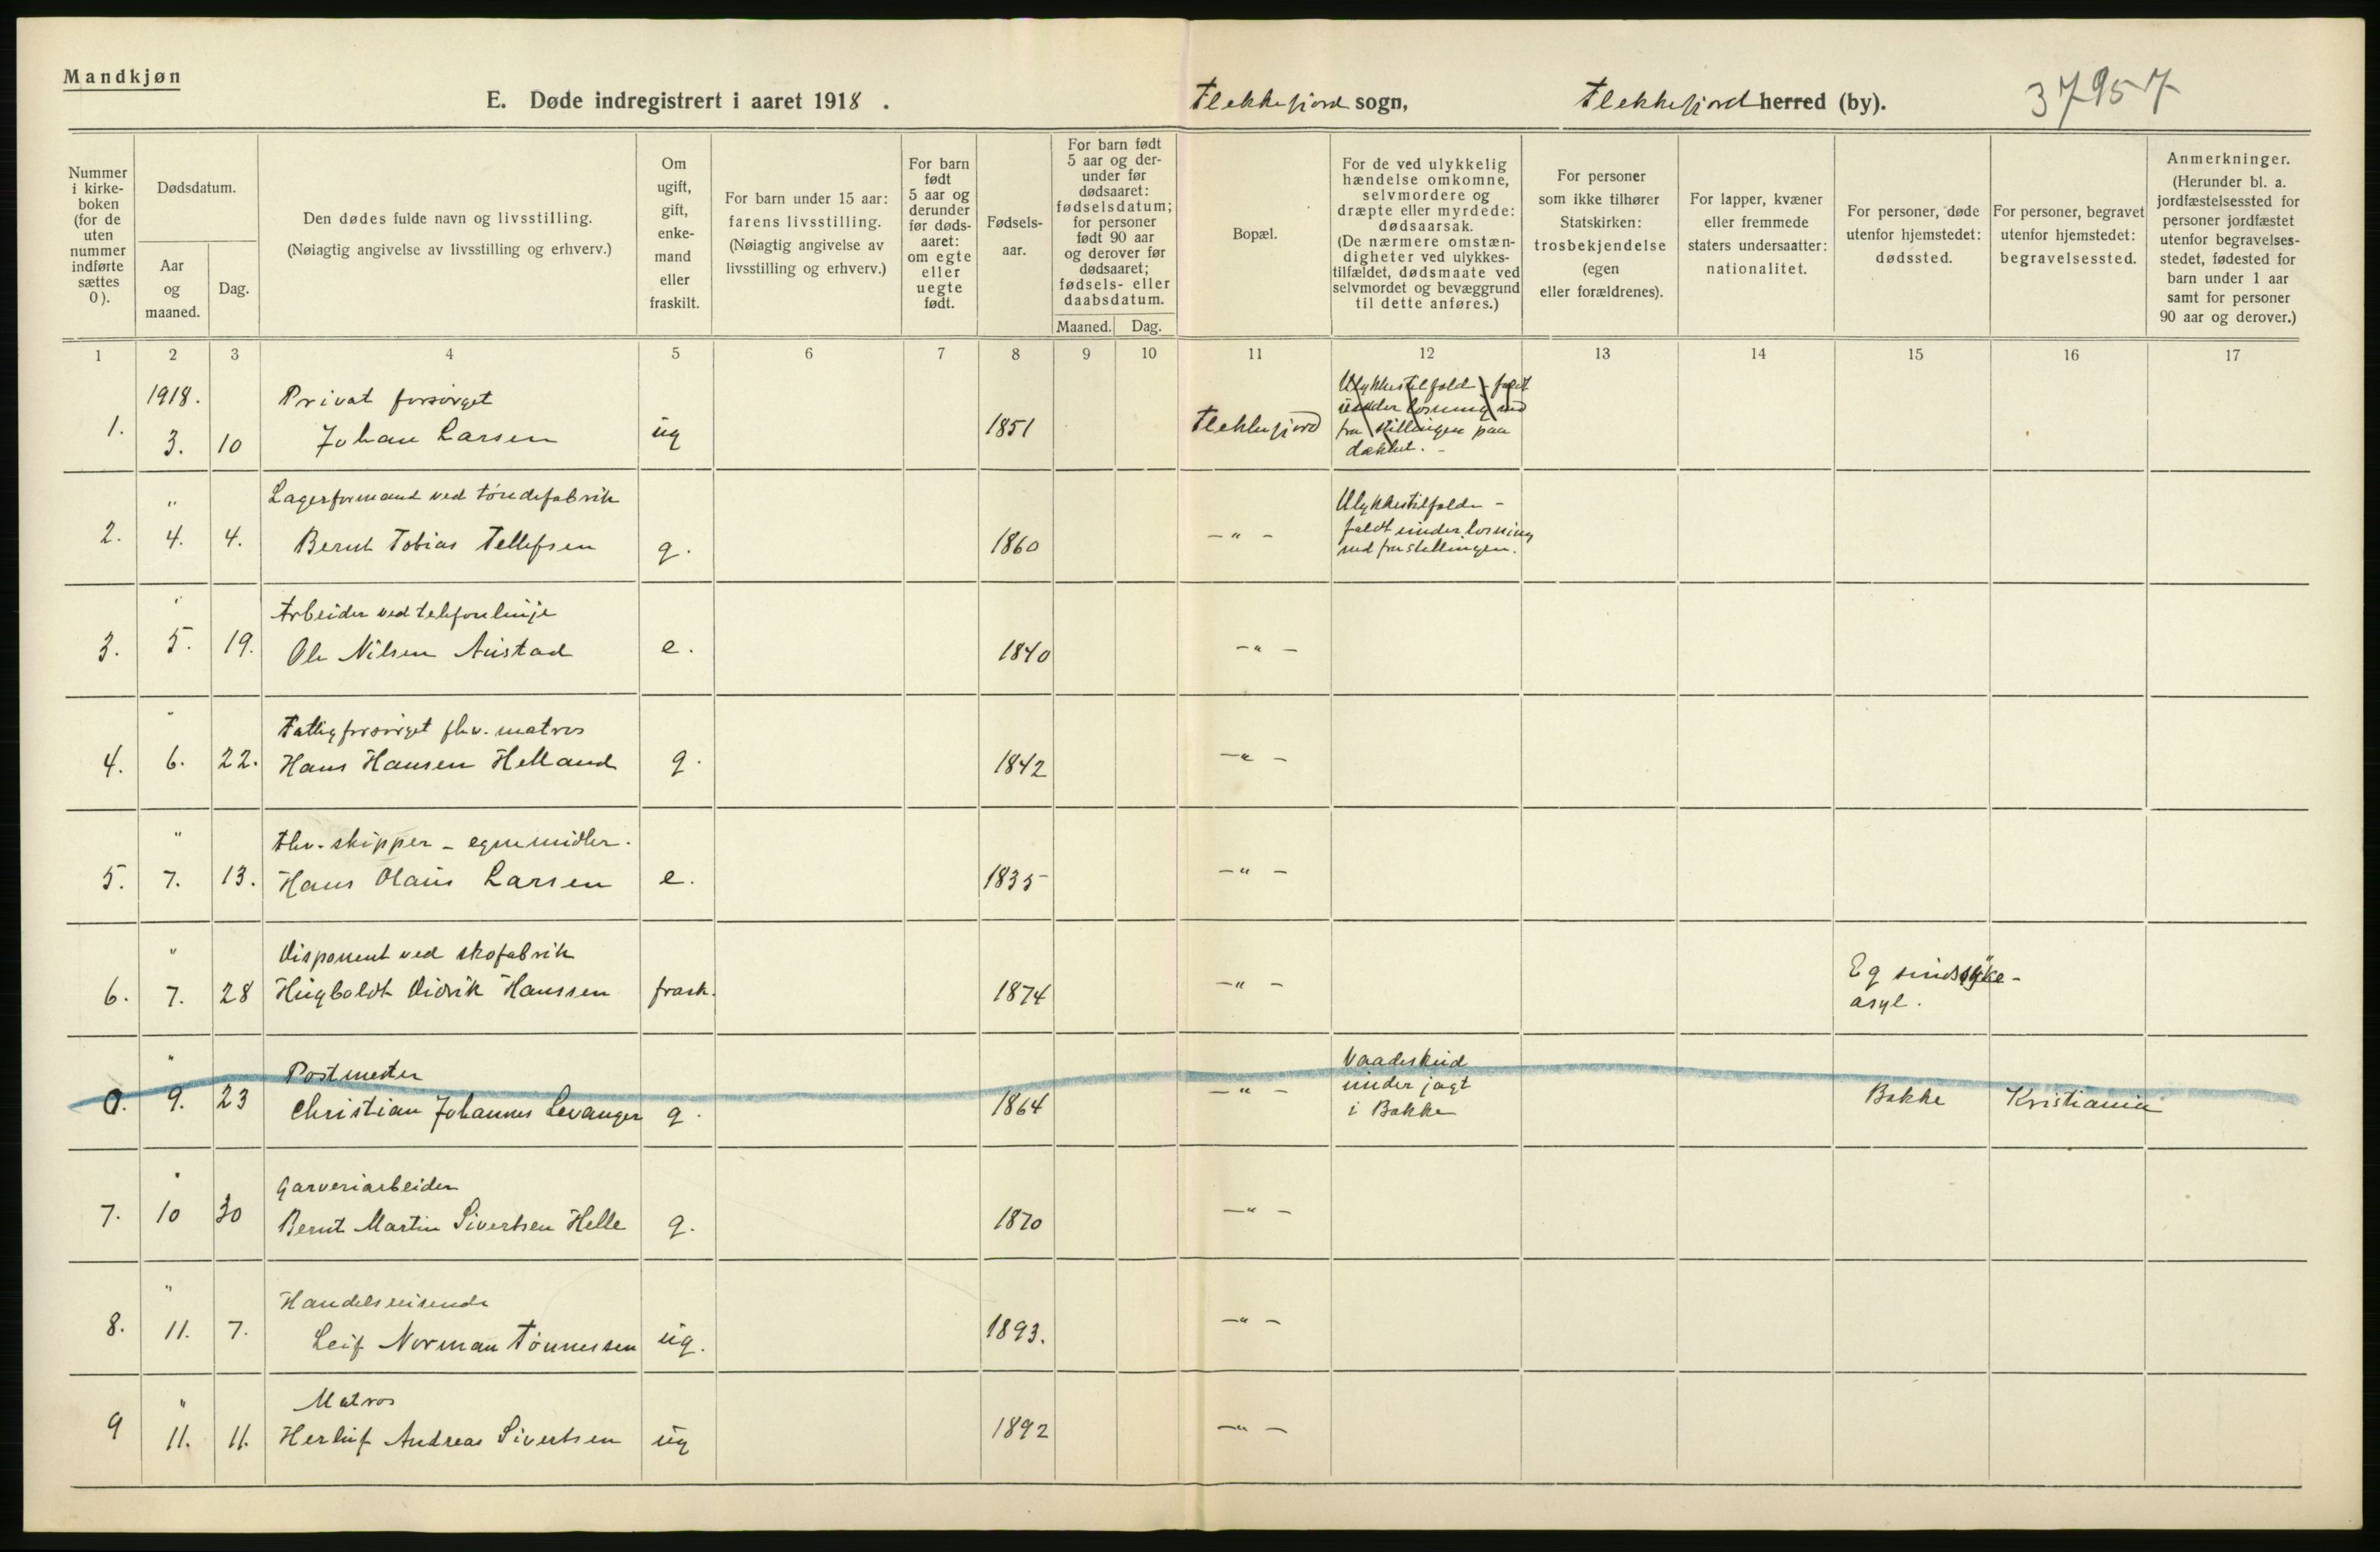 Mandkjøn
E. Døde indregistrert i aaret 1918 .
Flekkefjord sogn,
Flekkefjord herred (by).
37957
Nummer
i kirke-
boken
(for de
uten
nummer
indførte
sættes
0).
Dødsdatum.
Aar
og
maaned.
Dag.
Den dødes fulde navn og livsstilling.
(Nøiagtig angivelse av livsstilling og erhverv.)
Om
ugift,
gift,
enke-
mand
eller
fraskilt.
For barn under 15 aar:
farens livsstilling.
(Nøiagtig angivelse av
livsstilling og erhverv.)
For barn
født
5 aar og
derunder
før døds-
aaret:
om egte
eller
uegte
født.
Fødsels-
aar.
For barn født
5 aar og der-
under før
dødsaaret:
fødselsdatum;
for personer
født 90 aar
og derover før
dødsaaret;
fødsels- eller
daabsdatum.
Maaned. Dag.
Bopæl.
For de ved ulykkelig
hændelse omkomne,
selvmordere og
dræpte eller myrdede:
dødsaarsak.
(De nærmere omstæn-
digheter ved ulykkes-
tilfældet, dødsmaate ved
selvmordet og bevæggrund
til dette anføres.)
For personer
som ikke tilhører
Statskirken:
trosbekjendelse
(egen
eller forældrenes).
For lapper, kvæner
eller fremmede
staters undersaatter:
nationalitet.
For personer, døde
utenfor hjemstedet:
dødssted.
For personer, begravet
utenfor hjemstedet:
begravelsessted.
Anmerkninger.
(Herunder bl. a.
jordfæstelsessted for
personer jordfæstet
utenfor begravelses-
stedet, fødested for
barn under 1 aar
samt for personer
90 aar og derover.)
1 2 3 4 5 6 7 8 9 10 11 12 13 14 15 16 17
1918. Privat forsørget
1. 3. 10 Johan Larsen ug 1851 Flekkefjord
Ulykkestilfælde - faldt
under losning ned
fra stillingen paa
dækket. -
" Lagerformand ved tøndefabrik
2. 4. 4. Bernt Tobias Tellefsen g. 1860 - " -
Ulykkestilfælde -
faldt under losning
ned fra stillingen.
" Arbeider ved telefonlinje
3. 5. 19. Ole Nilsen Austad e. 1840 - " -
" Fattigforsørget fhv. matros
4. 6. 22. Hans Hansen Helland g. 1842 - " -
" Fhv. skipper - egne midler.
5. 7. 13. Hans Olaus Larsen e. 1835 - " -
" Disponent ved skofabrik
6. 7. 28 Hugboldt Didrik Hanssen frask. 1874 - " -
Eg sindssyke-
asyl.
" Postmester
0. 9. 23 Christian Johannes Levanger g. 1864 - " -
Vaadeskud
under jagt
i Bakke
Bakke Kristiania
" Garveriarbeider
7. 10 30 Bernt Martin Sivertsen Helle g. 1870 - " -
" Handelsreisende
8. 11. 7. Leif Norman Tønnessen ug. 1893. - " -
" Matros
9 11. 11. Herluf Andreas Sivertsen ug 1892 - " -